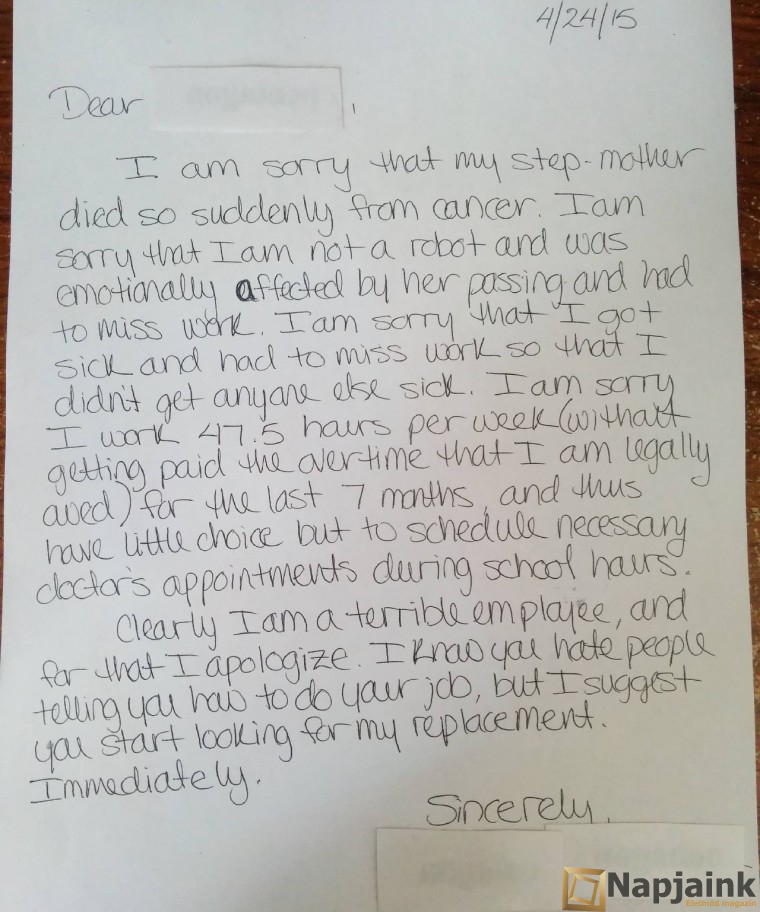 4/24/15
Dear ,
I am sorry that my step-mother
died so suddenly from cancer. I am
sorry that I am not a robot and was
emotionally affected by her passing and had
to miss work. I am sorry that I got
sick and had to miss work so that I
didn't get anyone else sick. I am sorry
I work 47.5 hours per week (without
getting paid the overtime that I am legally
owed) for the last 7 months, and thus
have little choice but to schedule necessary
doctor's appointments during school hours.
Clearly I am a terrible employee, and
for that I apologize. I know you hate people
telling you how to do your job, but I suggest
you start looking for my replacement.
Immediately.
Sincerely,
Napjaink
Életmód magazin